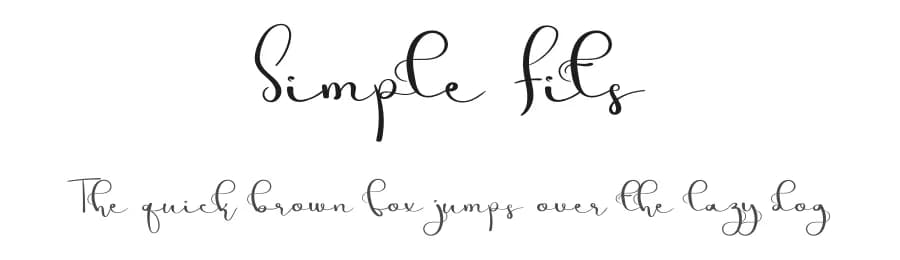 Simple fits
The quick brown fox jumps over the lazy dog